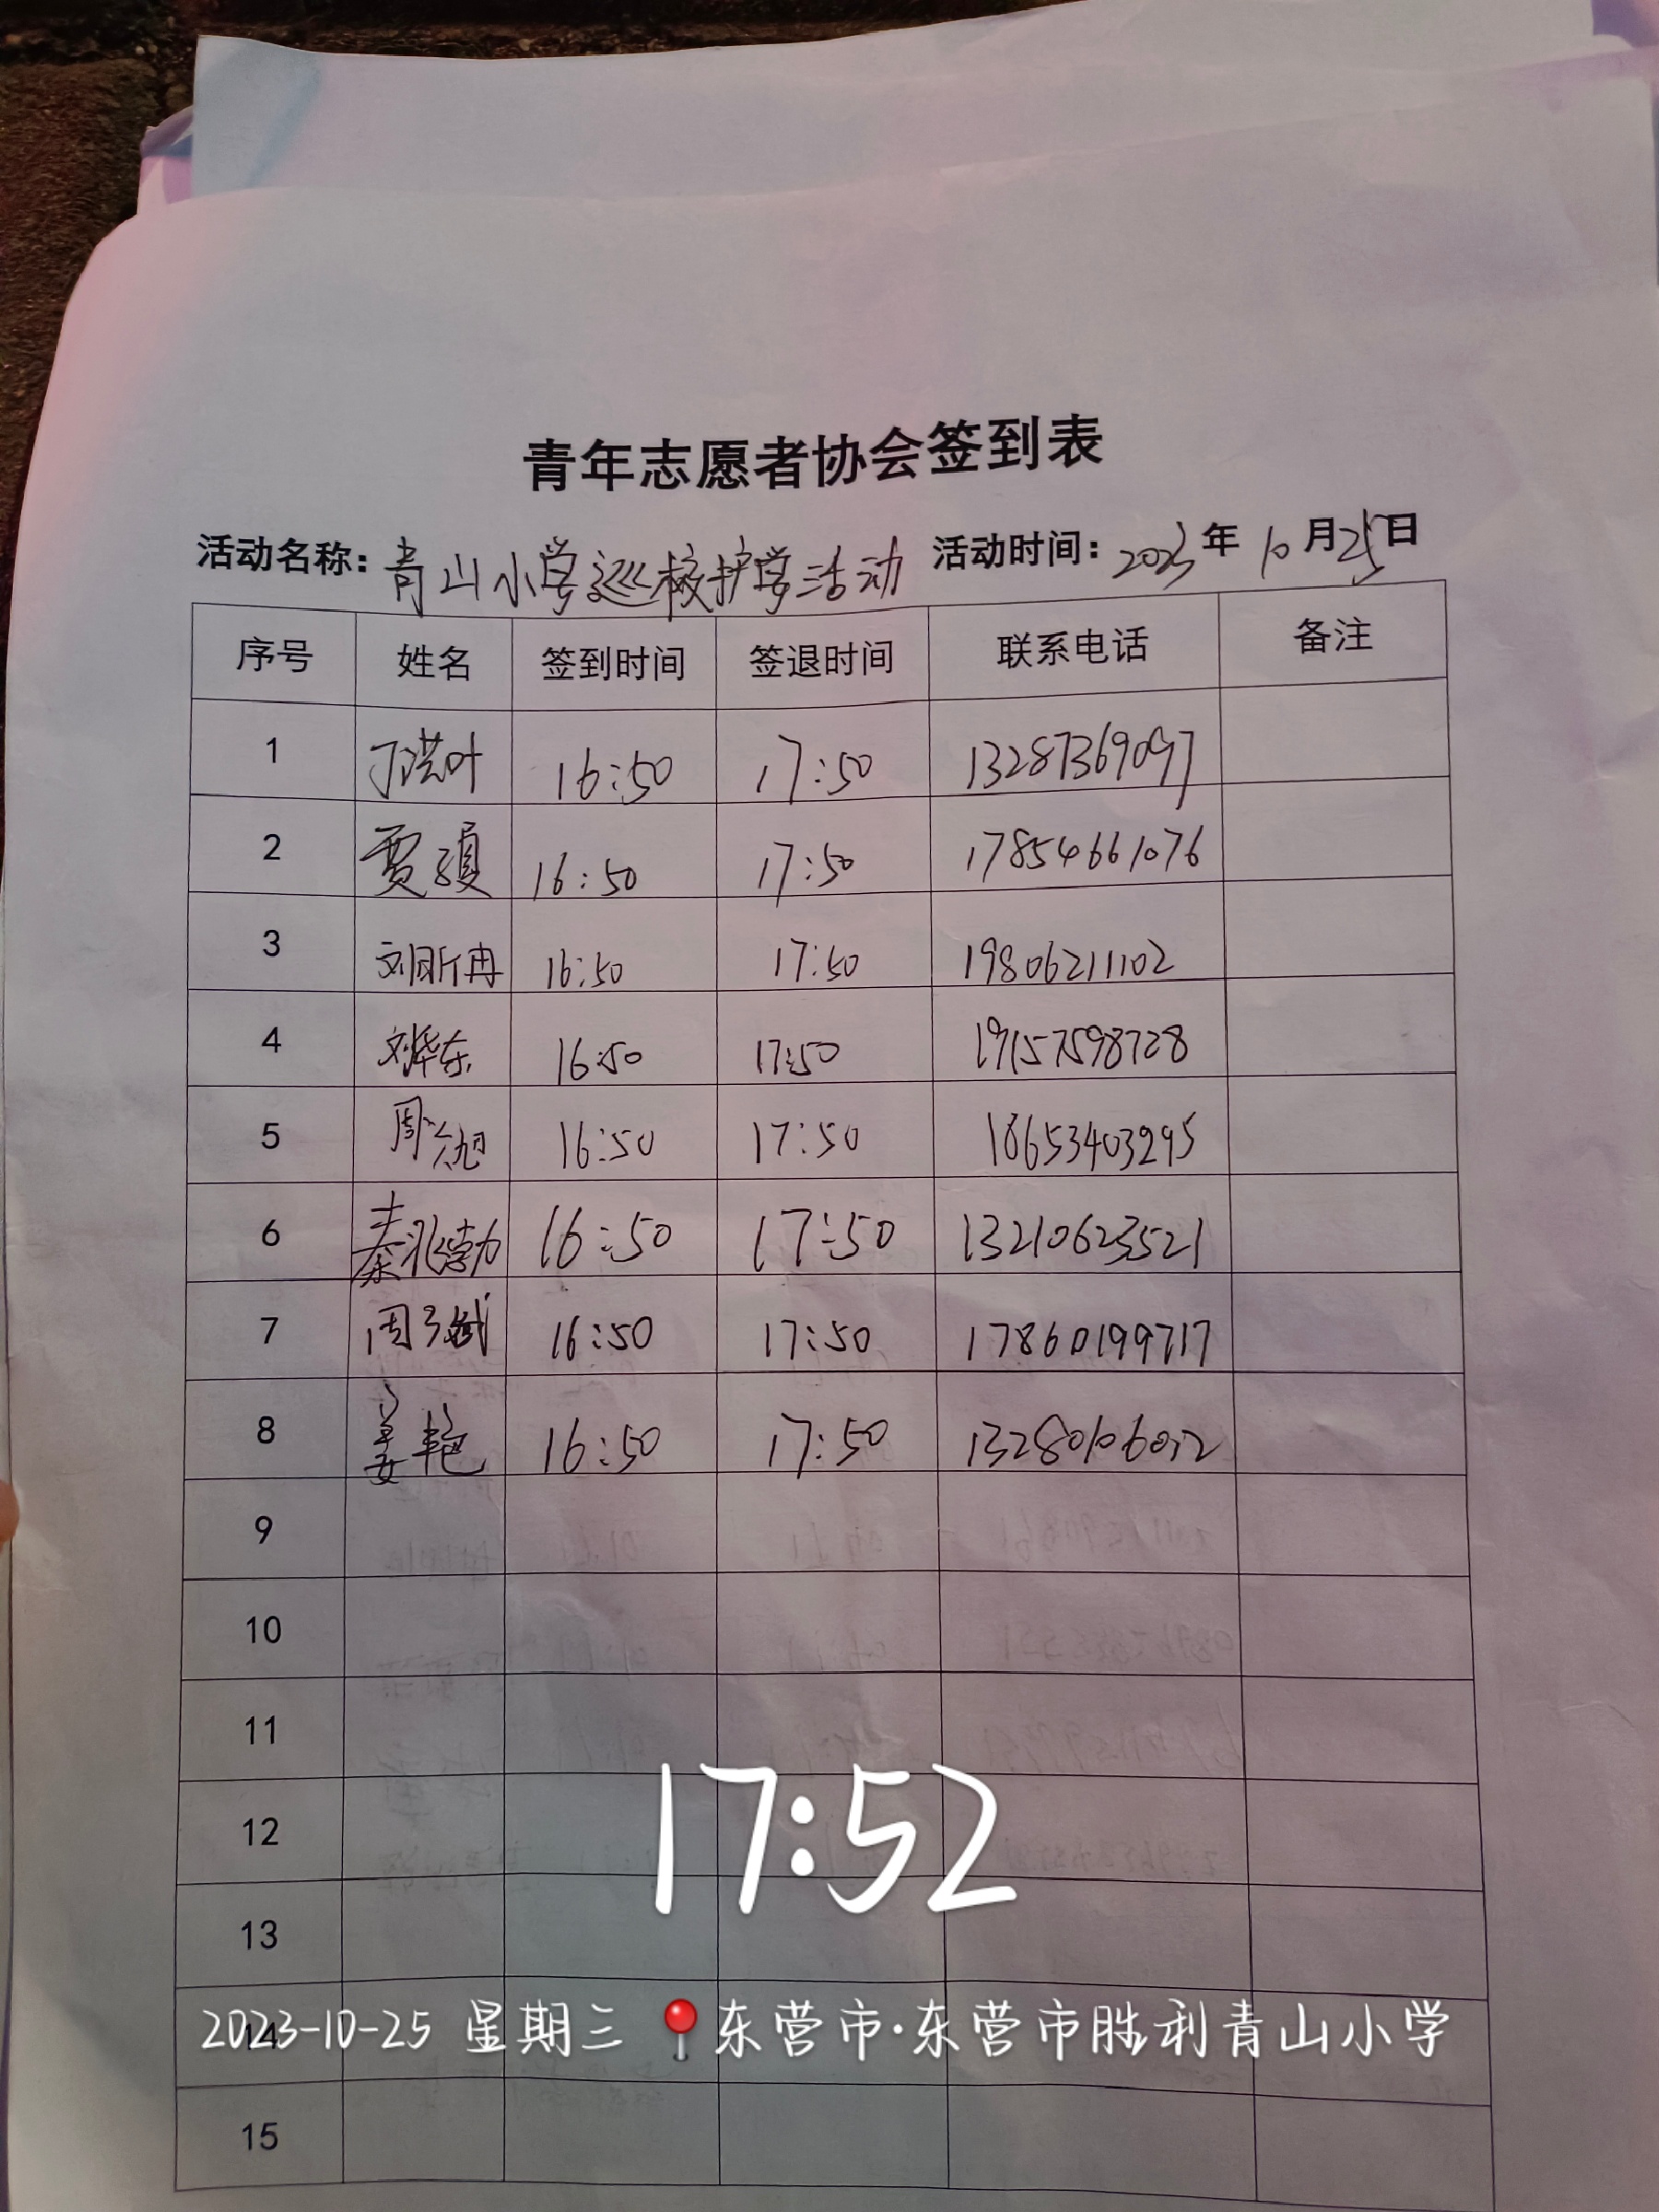 青年志愿者协会签到表
活动名称：青山小学巡校护学活动 活动时间：2023年10月25日
序号 姓名 签到时间 签退时间 联系电话 备注
1 丁洪叶 16:50 17:50 13287369097
2 贾 16:50 17:50 17854661076
3 刘昕冉 16:50 17:50 19806211102
4 刘华东 16:50 17:50 19157598728
5 周 16:50 17:50 18653403295
6 秦兆勃 16:50 17:50 13210623521
7 周子斌 16:50 17:50 17860199717
8 姜艳 16:50 17:50
9
10
11
12
13
14
15
17:52
2023-10-25 星期三 东营市·东营市胜利青山小学